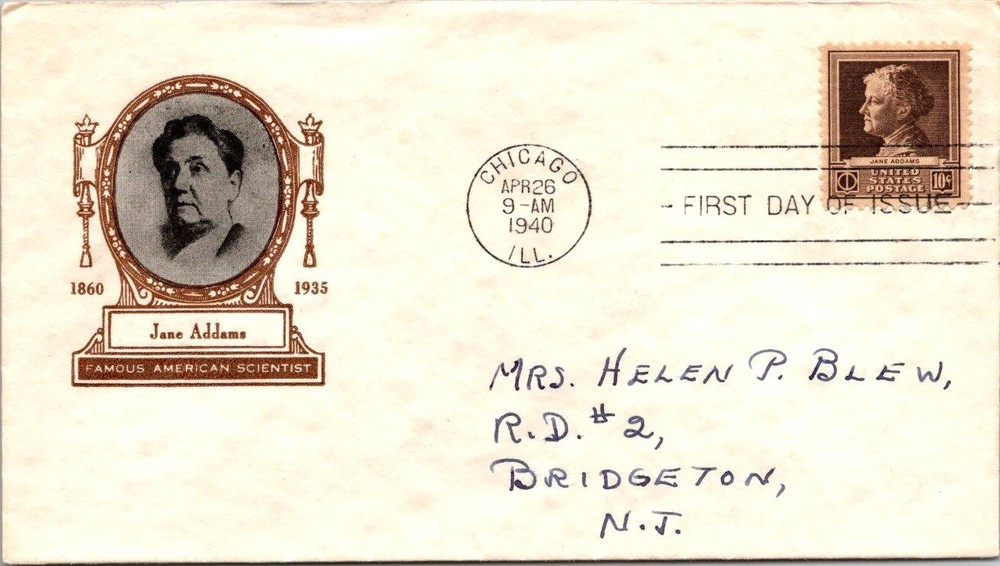 1860 1935
Jane Addams
FAMOUS AMERICAN SCIENTIST
CHICAGO
APR 26
9-AM
1940
ILL.
JANE ADDAMS
UNITED
STATES
POSTAGE
10¢
FIRST DAY OF ISSUE
MRS. HELEN P. BLEW,
R.D. #2,
BRIDGETON,
N.J.